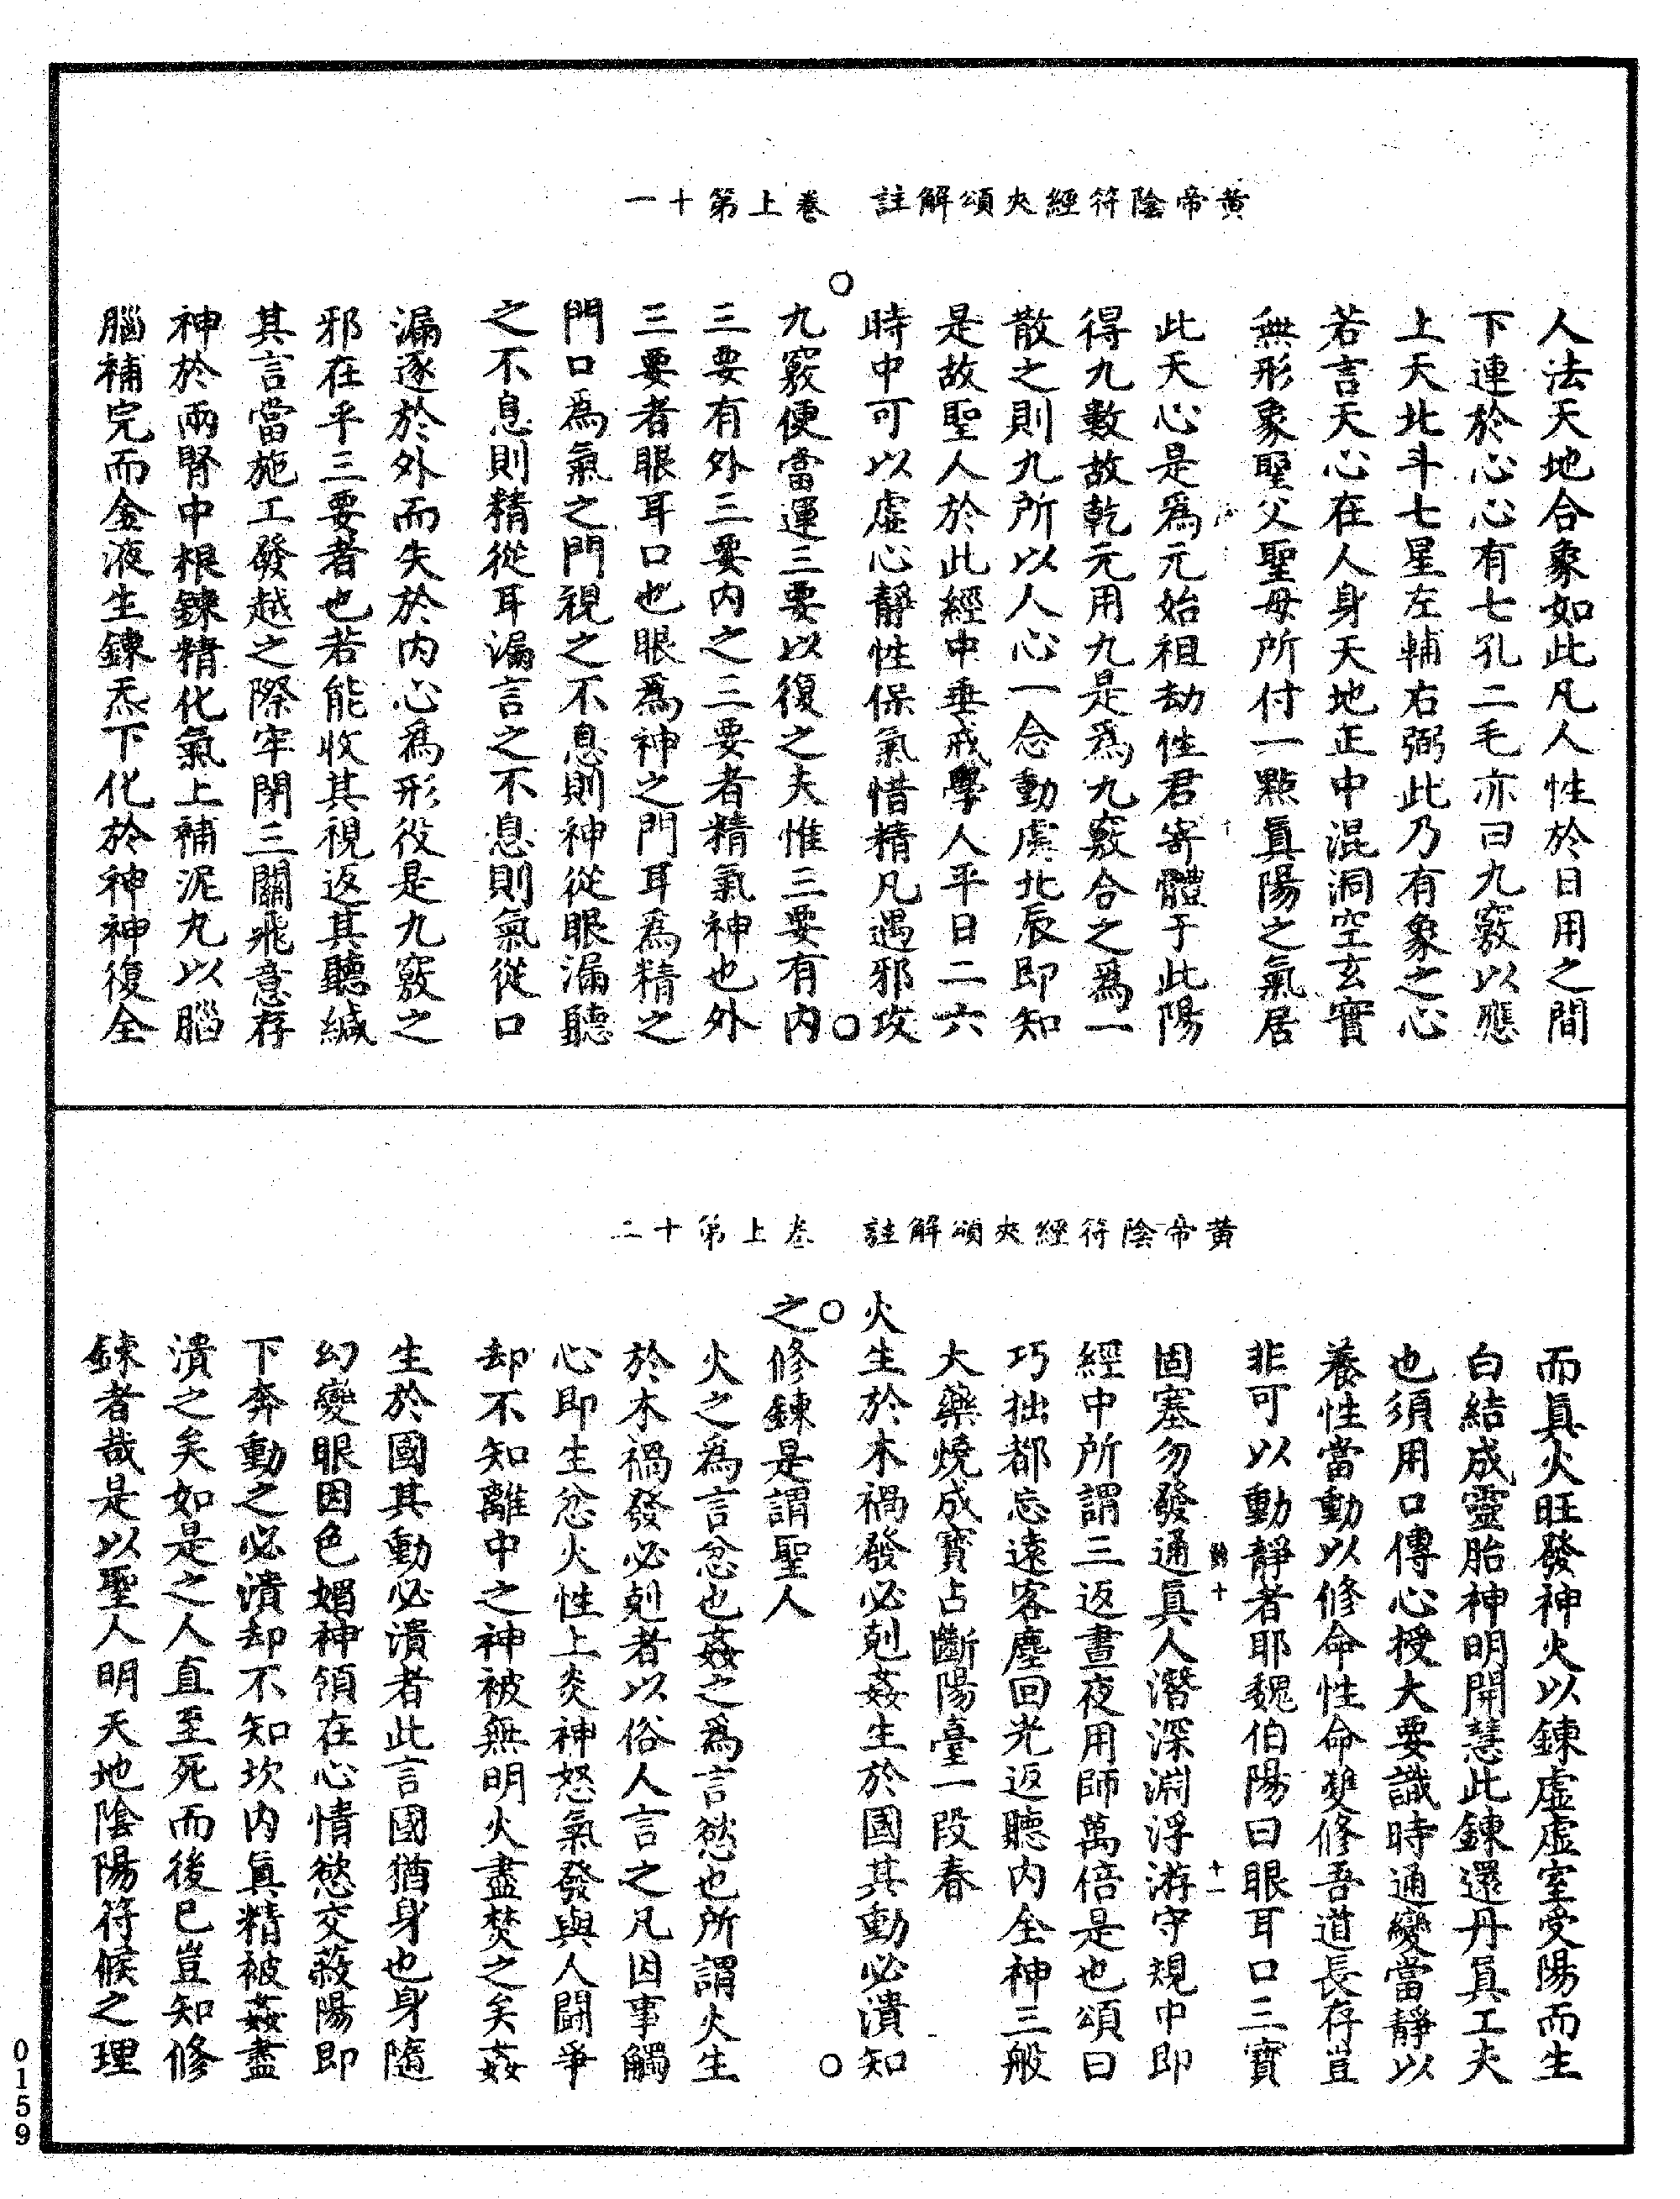 黃帝陰符經夾頌解註　卷上第十一
人法天地合象如此凡人性於日用之間
下連於心心有七孔二毛亦曰九竅以應
上天北斗七星左輔右弼此乃有象之心
若言天心在人身天地正中混洞空玄實
無形象聖父聖母所付一點眞陽之氣居
此天心是爲元始祖劫性君寄體于此陽
得九數故乾元用九是爲九竅合之爲一
散之則九所以人心一念動處北辰即知
是故聖人於此經中垂戒學人平日二六
時中可以虛心靜性保氣惜精凡遇邪攻
九竅便當運三要以復之夫惟三要有内
三要有外三要内之三要者精氣神也外
三要者眼耳口也眼爲神之門耳爲精之
門口爲氣之門視之不息則神從眼漏聽
之不息則精從耳漏言之不息則氣從口
漏逐於外而失於内心爲形役是九竅之
邪在乎三要者也若能收其視返其聽緘
其言當施工發越之際牢閉三關飛意存
神於兩腎中根鍊精化氣上補泥丸以腦
腦補完而金液生鍊炁下化於神神復全
黃帝陰符經夾頌解註　卷上第十二
而眞火旺發神火以鍊虛虛室受陽而生
白結成靈胎神明開慧此鍊還丹眞工夫
也須用口傳心授大要識時通變當靜以
養性當動以修命性命雙修吾道長存豈
非可以動靜者耶魏伯陽曰眼耳口三寶
固塞勿發通眞人潛深淵浮游守規中即
經中所謂三返晝夜用師萬倍是也頌曰
巧拙都忘遠客塵回光返聽内全神三般
大藥燒成寶占斷陽臺一段春
火生於木禍發必剋姦生於國其動必潰知
之修鍊是謂聖人
火之爲言忿也姦之爲言慾也所謂火生
於木禍發必剋者以俗人言之凡因事觸
心即生忿火性上炎神怒氣發與人鬪爭
却不知離中之神被無明火盡焚之矣姦
生於國其動必潰者此言國猶身也身隨
幻變眼因色媚神領在心情慾交蔽陽即
下奔動之必潰却不知坎内眞精被姦盡
潰之矣如是之人直至死而後已豈知修
鍊者哉是以聖人明天地陰陽符候之理
0159